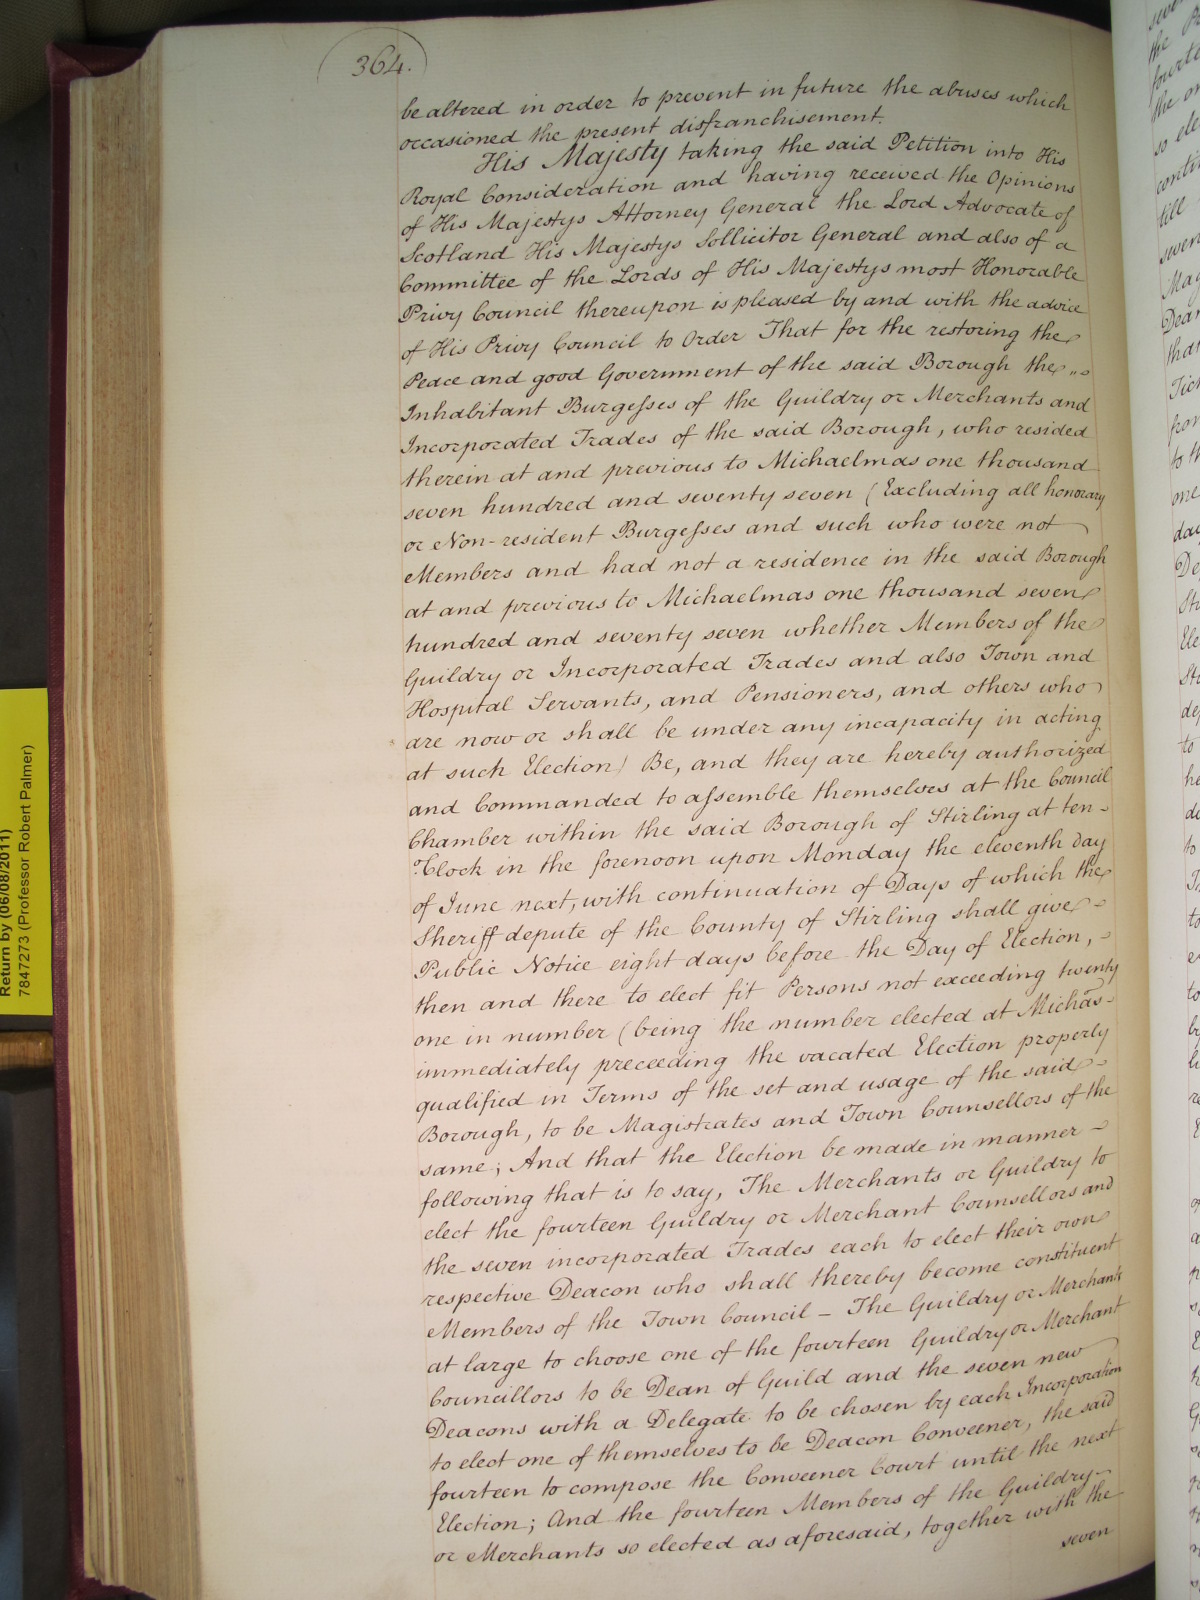 364.
be altered in order to prevent in future the abuses which
occasioned the present disfranchisement.
His Majesty taking the said Petition into His
Royal Consideration and having received the Opinions
of His Majestys Attorney General the Lord Advocate of
Scotland His Majestys Sollicitor General and also of a
Committee of the Lords of His Majestys most Honorable
Privy Council thereupon is pleased by and with the advice
of His Privy Council to Order That for the restoring the
Peace and good Government of the said Borough the
Inhabitant Burgesses of the Guildry or Merchants and
Incorporated Trades of the said Borough, who resided
therein at and previous to Michaelmas one thousand
seven hundred and seventy seven (Excluding all honorary
or Non-resident Burgesses and such who were not
Members and had not a residence in the said Borough
at and previous to Michaelmas one thousand seven
hundred and seventy seven whether Members of the
Guildry or Incorporated Trades and also Town and
Hospital Servants, and Pensioners, and others who
are now or shall be under any incapacity in acting
at such Election) Be, and they are hereby authorized
and Commanded to assemble themselves at the Council
Chamber within the said Borough of Stirling at ten
o'Clock in the forenoon upon Monday the eleventh day
of June next, with continuation of Days of which the
Sheriff depute of the County of Stirling shall give
Public Notice eight days before the Day of Election,
then and there to elect fit Persons not exceeding twenty
one in number (being the number elected at Michas
immediately preceeding the vacated Election properly
qualified in Terms of the set and usage of the said
Borough, to be Magistrates and Town Counsellors of the
same; And that the Election be made in manner
following that is to say, The Merchants or Guildry to
elect the fourteen Guildry or Merchant Counsellors and
the seven incorporated Trades each to elect their own
respective Deacon who shall thereby become constituent
Members of the Town Council – The Guildry or Merchants
at large to choose one of the fourteen Guildry or Merchant
Councillors to be Dean of Guild and the seven new
Deacons with a Delegate to be chosen by each Incorporation
to elect one of themselves to be Deacon Conveener, the said
fourteen to compose the Conveener Court until the next
Election; And the fourteen Members of the Guildry
or Merchants so elected as aforesaid, together with the
seven
Return by (06/08/2011)
7847273 (Professor Robert Palmer)